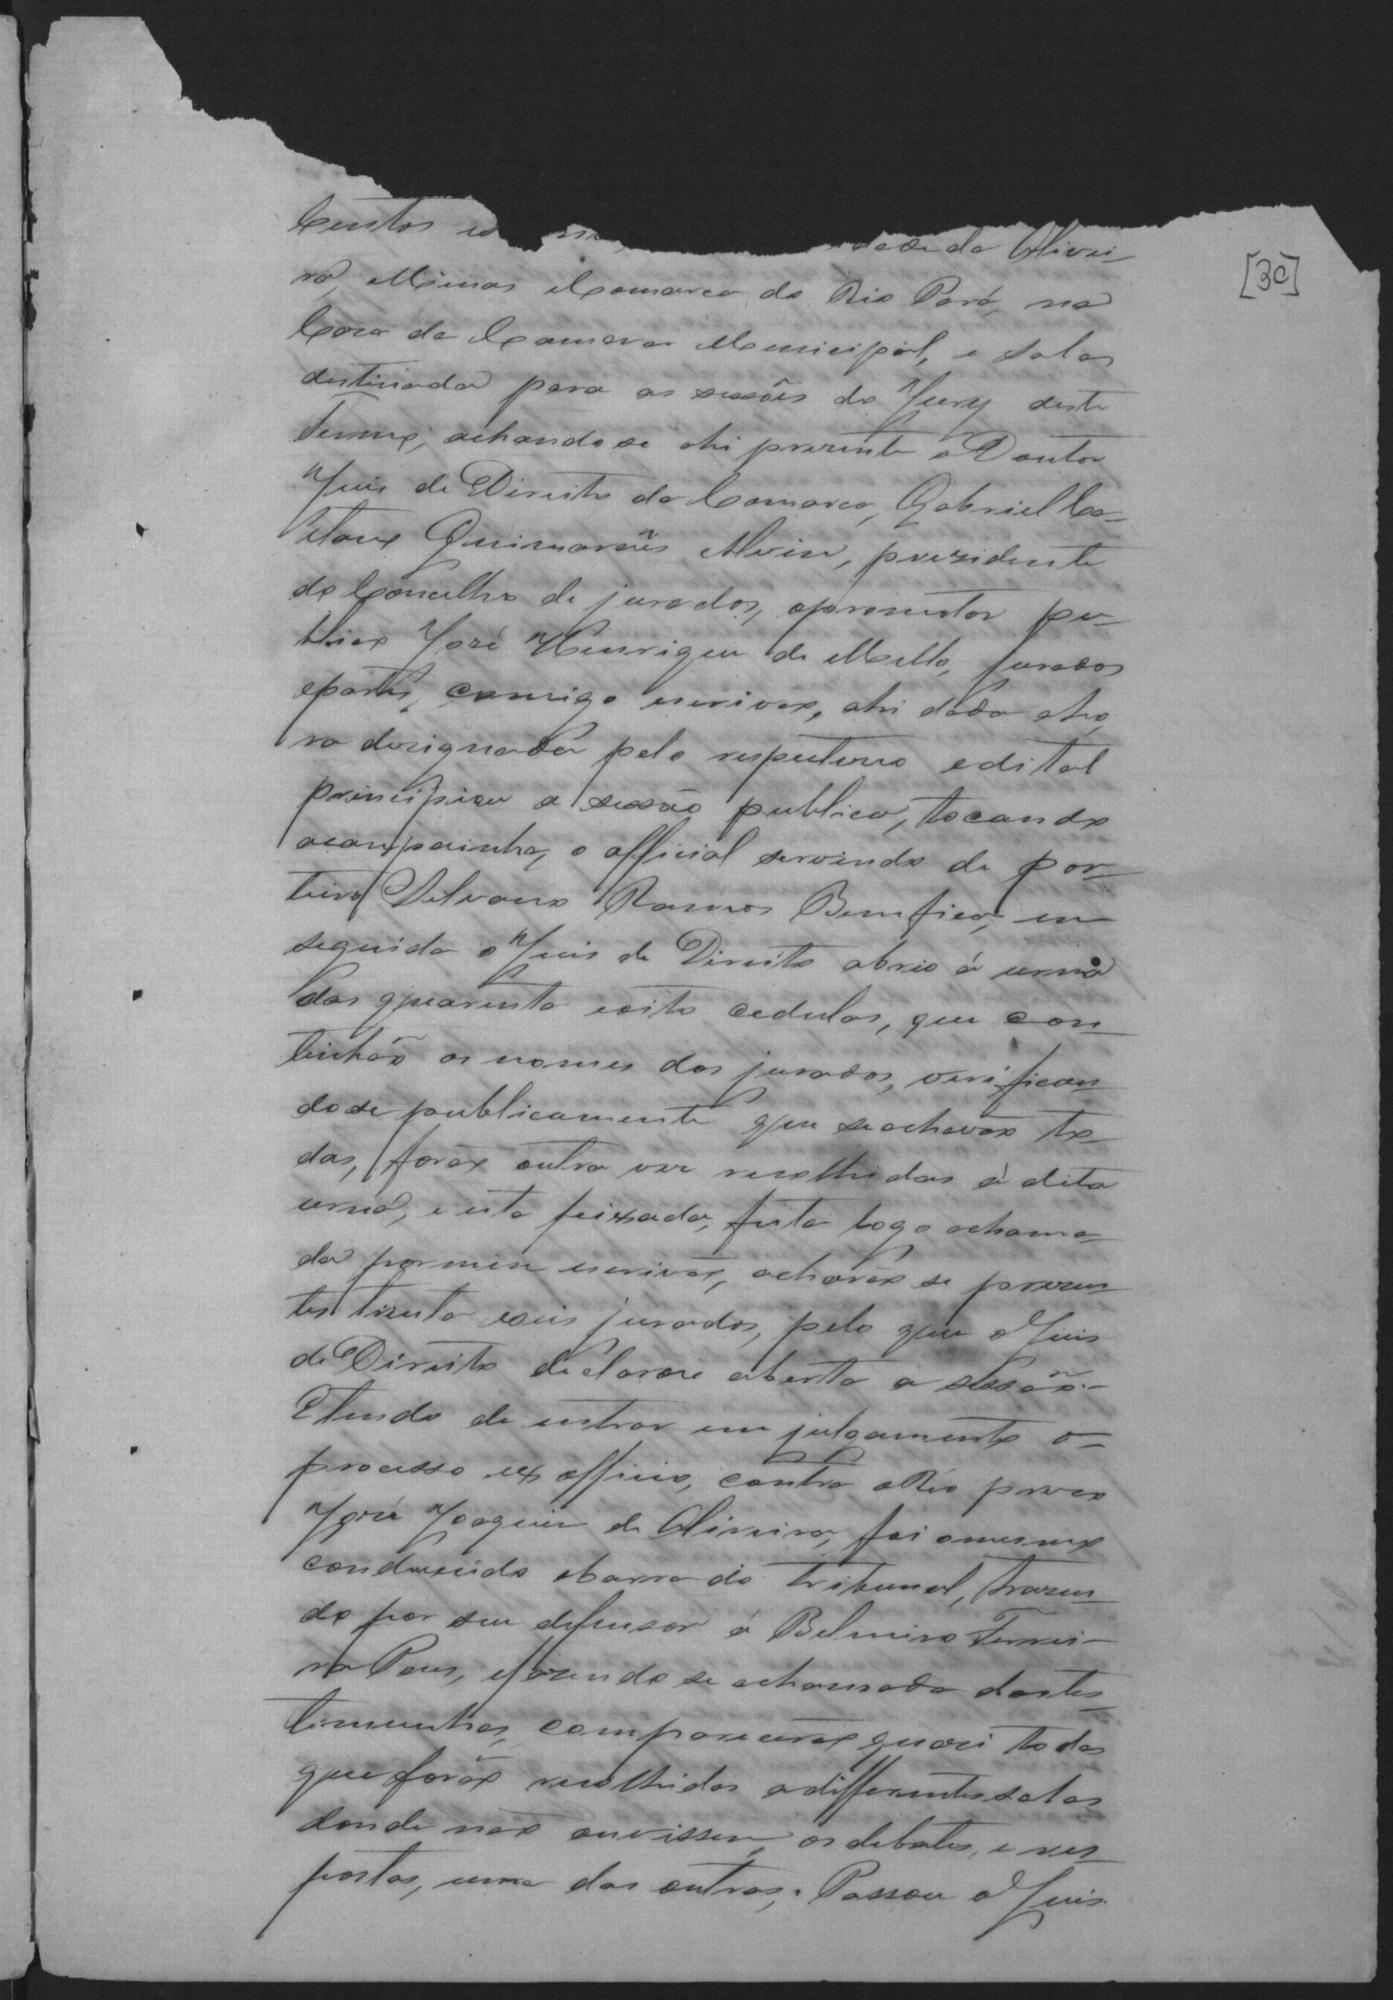 centos e dade da Olivei
ra, Minas Comarca do Rio Pará, na
Casa da Camara Municipal, e sala
destinada para as sessões do Jury deste
Termo, achando se ahi prezente o Doutor
Juis de Direito da Comarca, Gabriel Ca-
etano Guimarães Alvim, prezidente
do Concelho de jurados, opromotor pu-
blico José Henriques de Mello, jurados
epartes, comigo escrivão, ahi dada aho
ra designada pelo respectivo edital
principiou a sessão publica, tocando
acampainha, o official servindo de por-
teiro Silvano Ramos Bemfica, em
seguida o Juis de Direito abrio á urna
das quarenta eoito cedulas, que con
tinhão os nomes dos jurados, verifican
dose publicamente que seachavão to-
das, forão outra ves recolhidas á dita
urna, e esta feixada, feita logo achama-
da pormim escrivão, acharão se prezen
tes trinta eseis jurados, pelo que o Juis
de Direito declarou aberta a sessão.-
Etendo de entrar em julgamento o-
processo ex officio, contra oReo prezo
José Joaquim de Oliveira, foi omesmo
conduzido abarra do tribunal, trazen
do por seu defensor á Belmiro Ferrei-
ra Paes, efazendo se achamada dastes
temunhas, comparecerão quazi todas
que forão recolhidas adifferentes salas
donde não ouvissem os debates, e res
postas, uma das outras. Passou o Juis
[30]